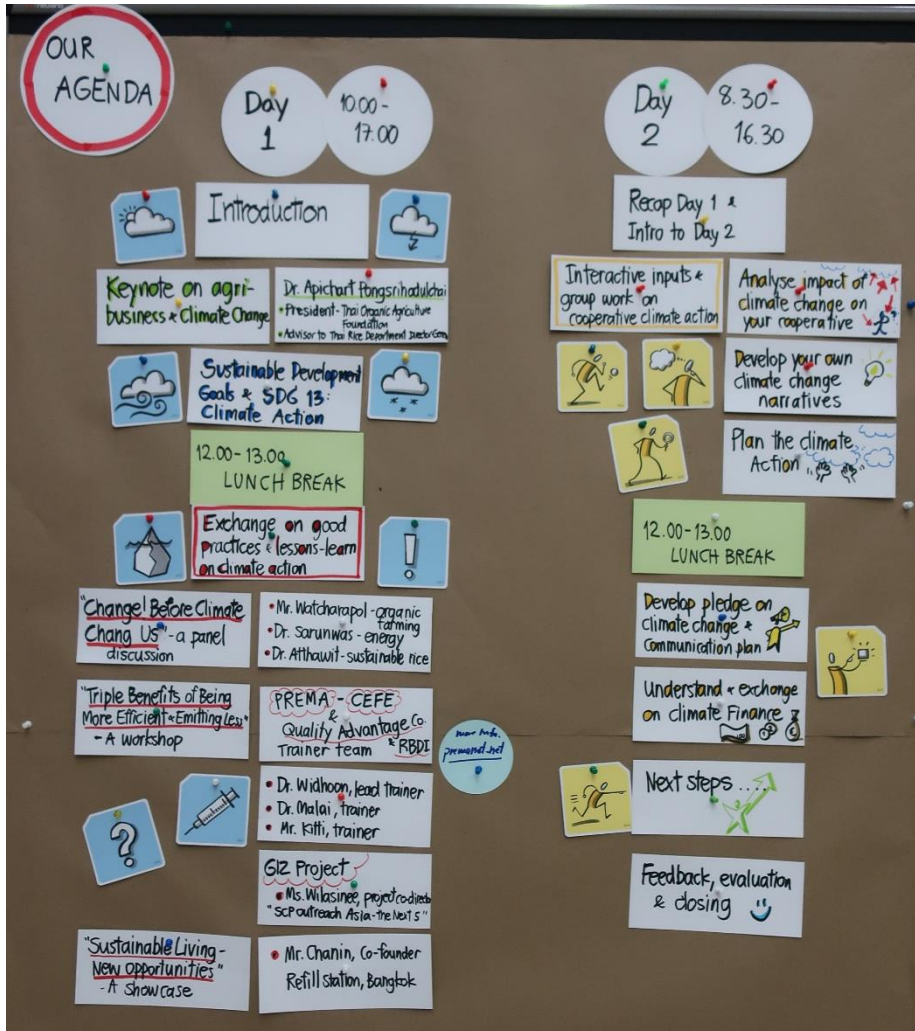 OUR
AGENDA
Day
1
10.00-
17.00
Introduction
Keynote on agri-
business & Climate Change
Dr. Apichart Pongsrihadulchai
• President - Thai Organic Agriculture
Foundation
• Advisor to Thai Rice Department
Sustainable Development
Goals & SDG 13:
Climate Action
12.00-13.00
LUNCH BREAK
Exchange on good
practices & lessons-learn
on climate action
"Change! Before Climate
Chang Us" - a panel
discussion
• Mr. Watcharapol - organic
farming
• Dr. Sarunwas - energy
• Dr. Atthawit - sustainable rice
"Triple Benefits of Being
More Efficient & Emitting Less"
- A workshop
PREMA - CEFE
&
Quality Advantage Co.
Trainer team & RBDI
• Dr. Widhoon, lead trainer
• Dr. Malai, trainer
• Mr. Kitti, trainer
GIZ Project
• Ms. Wilasinee, project co-director
"SCP outreach Asia - the Next 5"
"Sustainable Living -
New opportunities"
- A showcase
• Mr. Chanin, Co-founder
Refill station, Bangkok
more info.
premanet.net
Day
2
8.30-
16.30
Recap Day 1 &
Intro to Day 2
Interactive inputs &
group work on
cooperative climate action
Analyse impact of
climate change on
your cooperative
Develop your own
climate change
narratives
Plan the climate
Action
12.00-13.00
LUNCH BREAK
Develop pledge on
climate change &
Communication plan
Understand & exchange
on climate Finance
Next steps ....
Feedback, evaluation
& closing